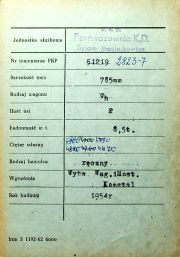 P.K.P.
Jednostka służbowa Parowozownia K.D.
Dyton Maciejkowice
Nr inwentarza PKP 5.12.19. 2823-7
Szerokość toru 785mm
Rodzaj wagonu Wh
Ilość osi 2
Ładowność w t. 8,5t.
Ciężar własny
Rodzaj hamulca ręczny
Wytwórnia Wytw. Wag.iMost.
Konstal
Rok budowy 1954r